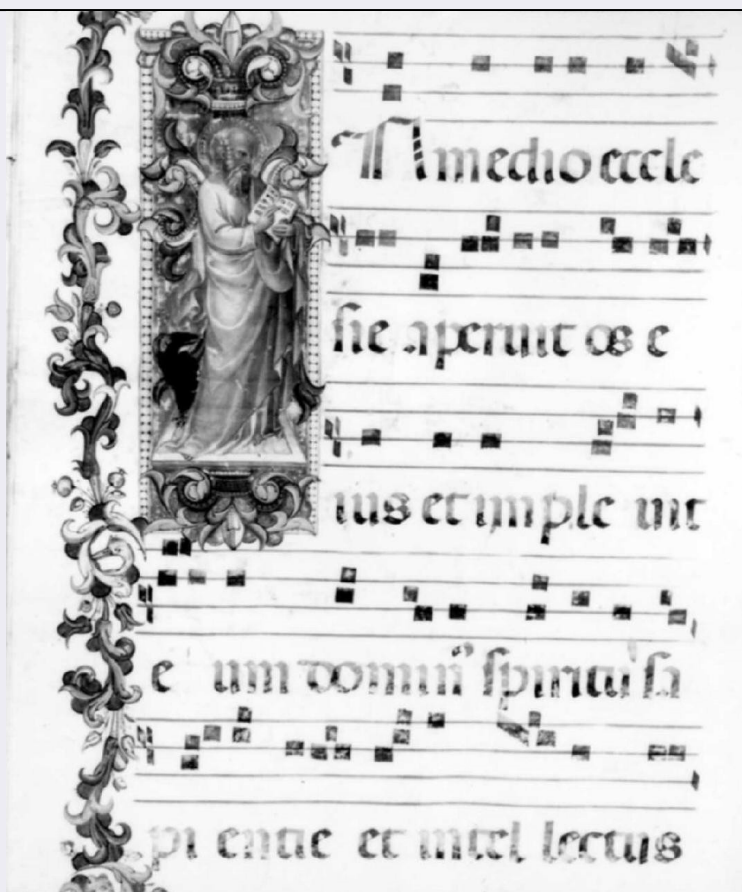 IN medio eccle
sie aperuit os e
ius et imple uit
e um dominꝰ spiritu sa
pi entie et intel lectus